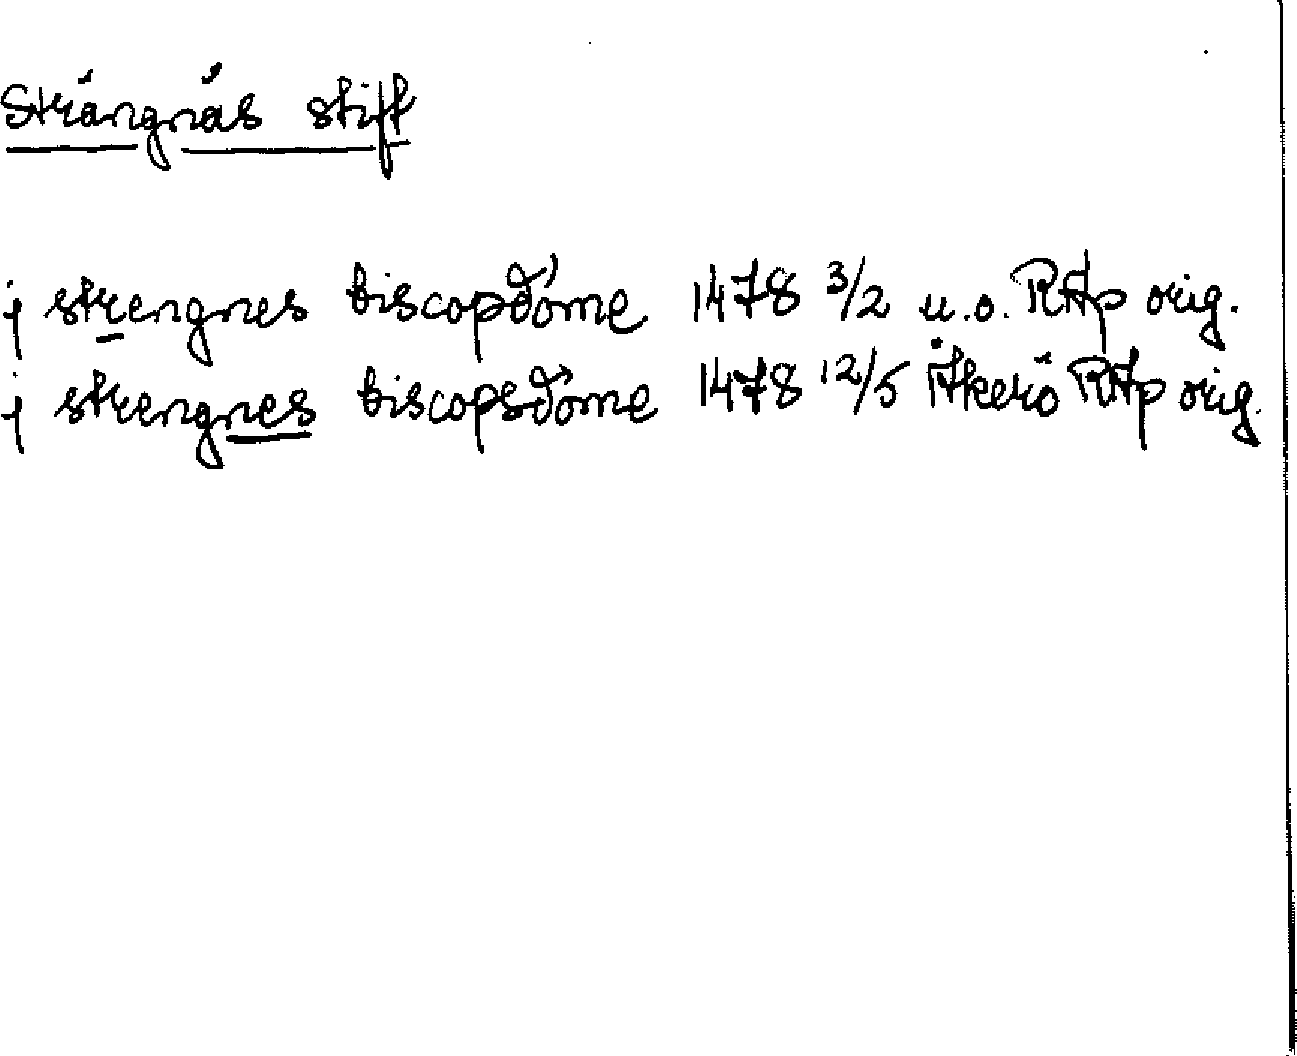 Strängnäs stift
j strengnes biscopdöme 1478 3/2 u.o. RAp orig.
j strengnes biscopsdöme 1478 12/5 Åkerö RAp orig.